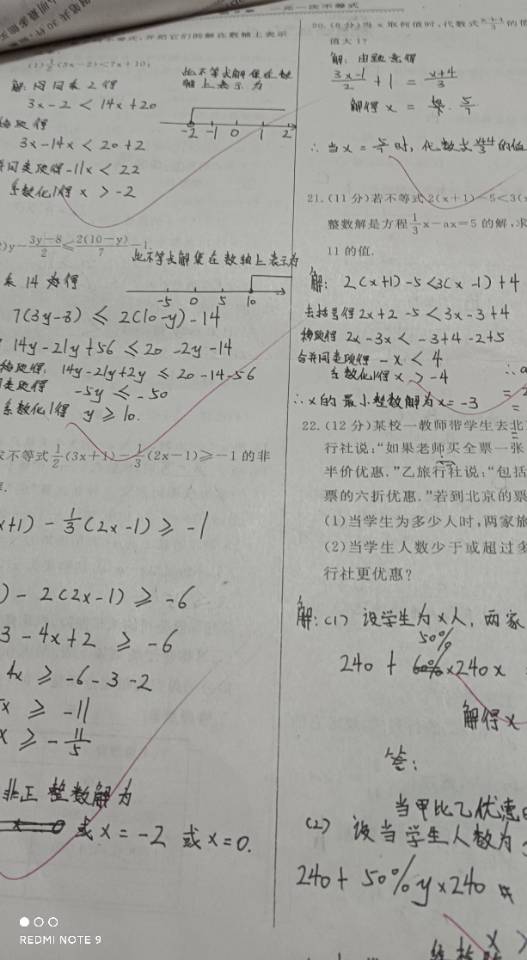 一元一次不等式
并把它们的解在数轴上表示
(1) 1/2(3x-2)<7x+10;
解:同乘2得
此不等式解集在数
轴上表示为
3x-2 < 14x+20
移项得
3x-14x < 20+2
-2 -1 0 1 2
并同类项得 -11x < 22
系数化1得 x > -2
y-(3y-8)/2≤2(10-y)/7-1.
此不等式解集在数轴上表示为
乘14为得
-5 0 5 10
7(3y-8) ≤ 2(10-y)-14
14y-21y+56 ≤ 20-2y-14
移项得 14y-21y+2y ≤ 20-14-56
同类项得 -5y ≤ -50
系数化1得 y ≥ 10.
求不等式1/2(3x+1)-1/3(2x-1)≥-1的非
x+1) - 1/3(2x-1) ≥ -1
) - 2(2x-1) ≥ -6
3 - 4x+2 ≥ -6
4x ≥ -6-3-2
x ≥ -11
x ≥ -11/5
非正整数解为
或 x=-2 或 x=0.
20.(8分)当x取何值时,代数式(x+4)/3的
值大1?
解:由题意得
(3x-1)/2 + 1 = (x+4)/3
解得 x = 5/7
∴当x=5/7时,代数式(x+4)/3的值
21.(11分)若不等式2(x+1)-5<3(x
整数解是方程1/3x-ax=5的解,求
11的值.
解:2(x+1)-5<3(x-1)+4
去括号得 2x+2-5<3x-3+4
移项得 2x-3x< -3+4-2+5
合并同类项得 -x < 4
系数化1得 x > -4
∴x的最小整数解为x=-3
22.(12分)某校一教师带学生去北
行社说:“如果老师买全票一张
半价优惠.”乙旅行社说:“包括
票的六折优惠.”若到北京的票
(1)当学生为多少人时,两家旅
(2)当学生人数少于或超过多
行社更优惠?
解:(1) 设学生为x人,两家
50%
240 + 60%×240x
解得x
答:
当甲比乙优惠
(2) 设当学生人数为
240+50%y×240
x >
REDMI NOTE 9